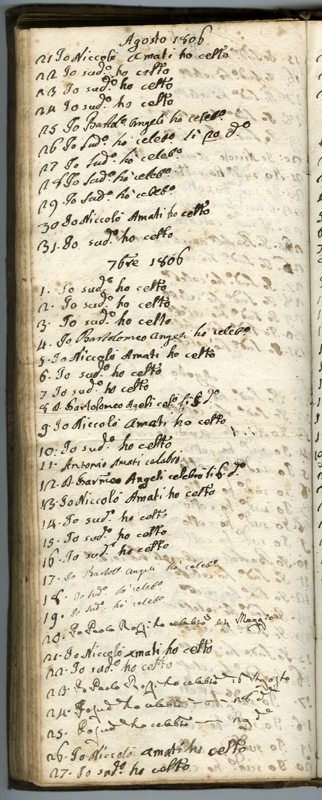 Agosto 1806
21 Io Niccolò Amati ho celto
22 Io sudo. ho celto
23 Io sudo. ho celto
24 Io sudo. ho celto
25 Io Bartolo. Angeli ho celebo
26 Io sudo. ho celebo li 20 do
27 Io sudo. ho celebo
28 Io sudo. ho celebo
29 Io sudo. ho celebo
30 Io Niccolò Amati ho celto
31. Io sudo. ho celto
7bre 1806
1. Io sudo. ho celto
2. Io sudo. ho celto
3. Io sudo. ho celto
4. Io Bartolomeo Angeli ho celebo
5. Io Niccolò Amati ho celto
6. Io sudo. ho celto
7 Io sudo. ho celto
8 D. Bartolomeo Ageli
9. Io Niccolò Amati ho celto
10. Io sudo. ho celto
11. Antonio Amati celebro
12. D. Angeli celebro
13. Io Niccolò Amati ho celto
14. Io sudo. ho celto
15. Io sudo. ho celto
16. Io sudo. ho celto
17. Io Bartolo. Angeli ho celebo
18. Io sudo. ho celebo
19. Io sudo. ho celebo
20. Io Paolo ho celebro Maggio
21. Io Niccolò Amati ho celto
22. Io sudo. ho celto
23. Io Paolo ho celebro Agosto
24. ho celebro 26 do
25. ho celebro 29 do
26. Io Niccolò Amati ho celto
27. Io sudo. ho celto